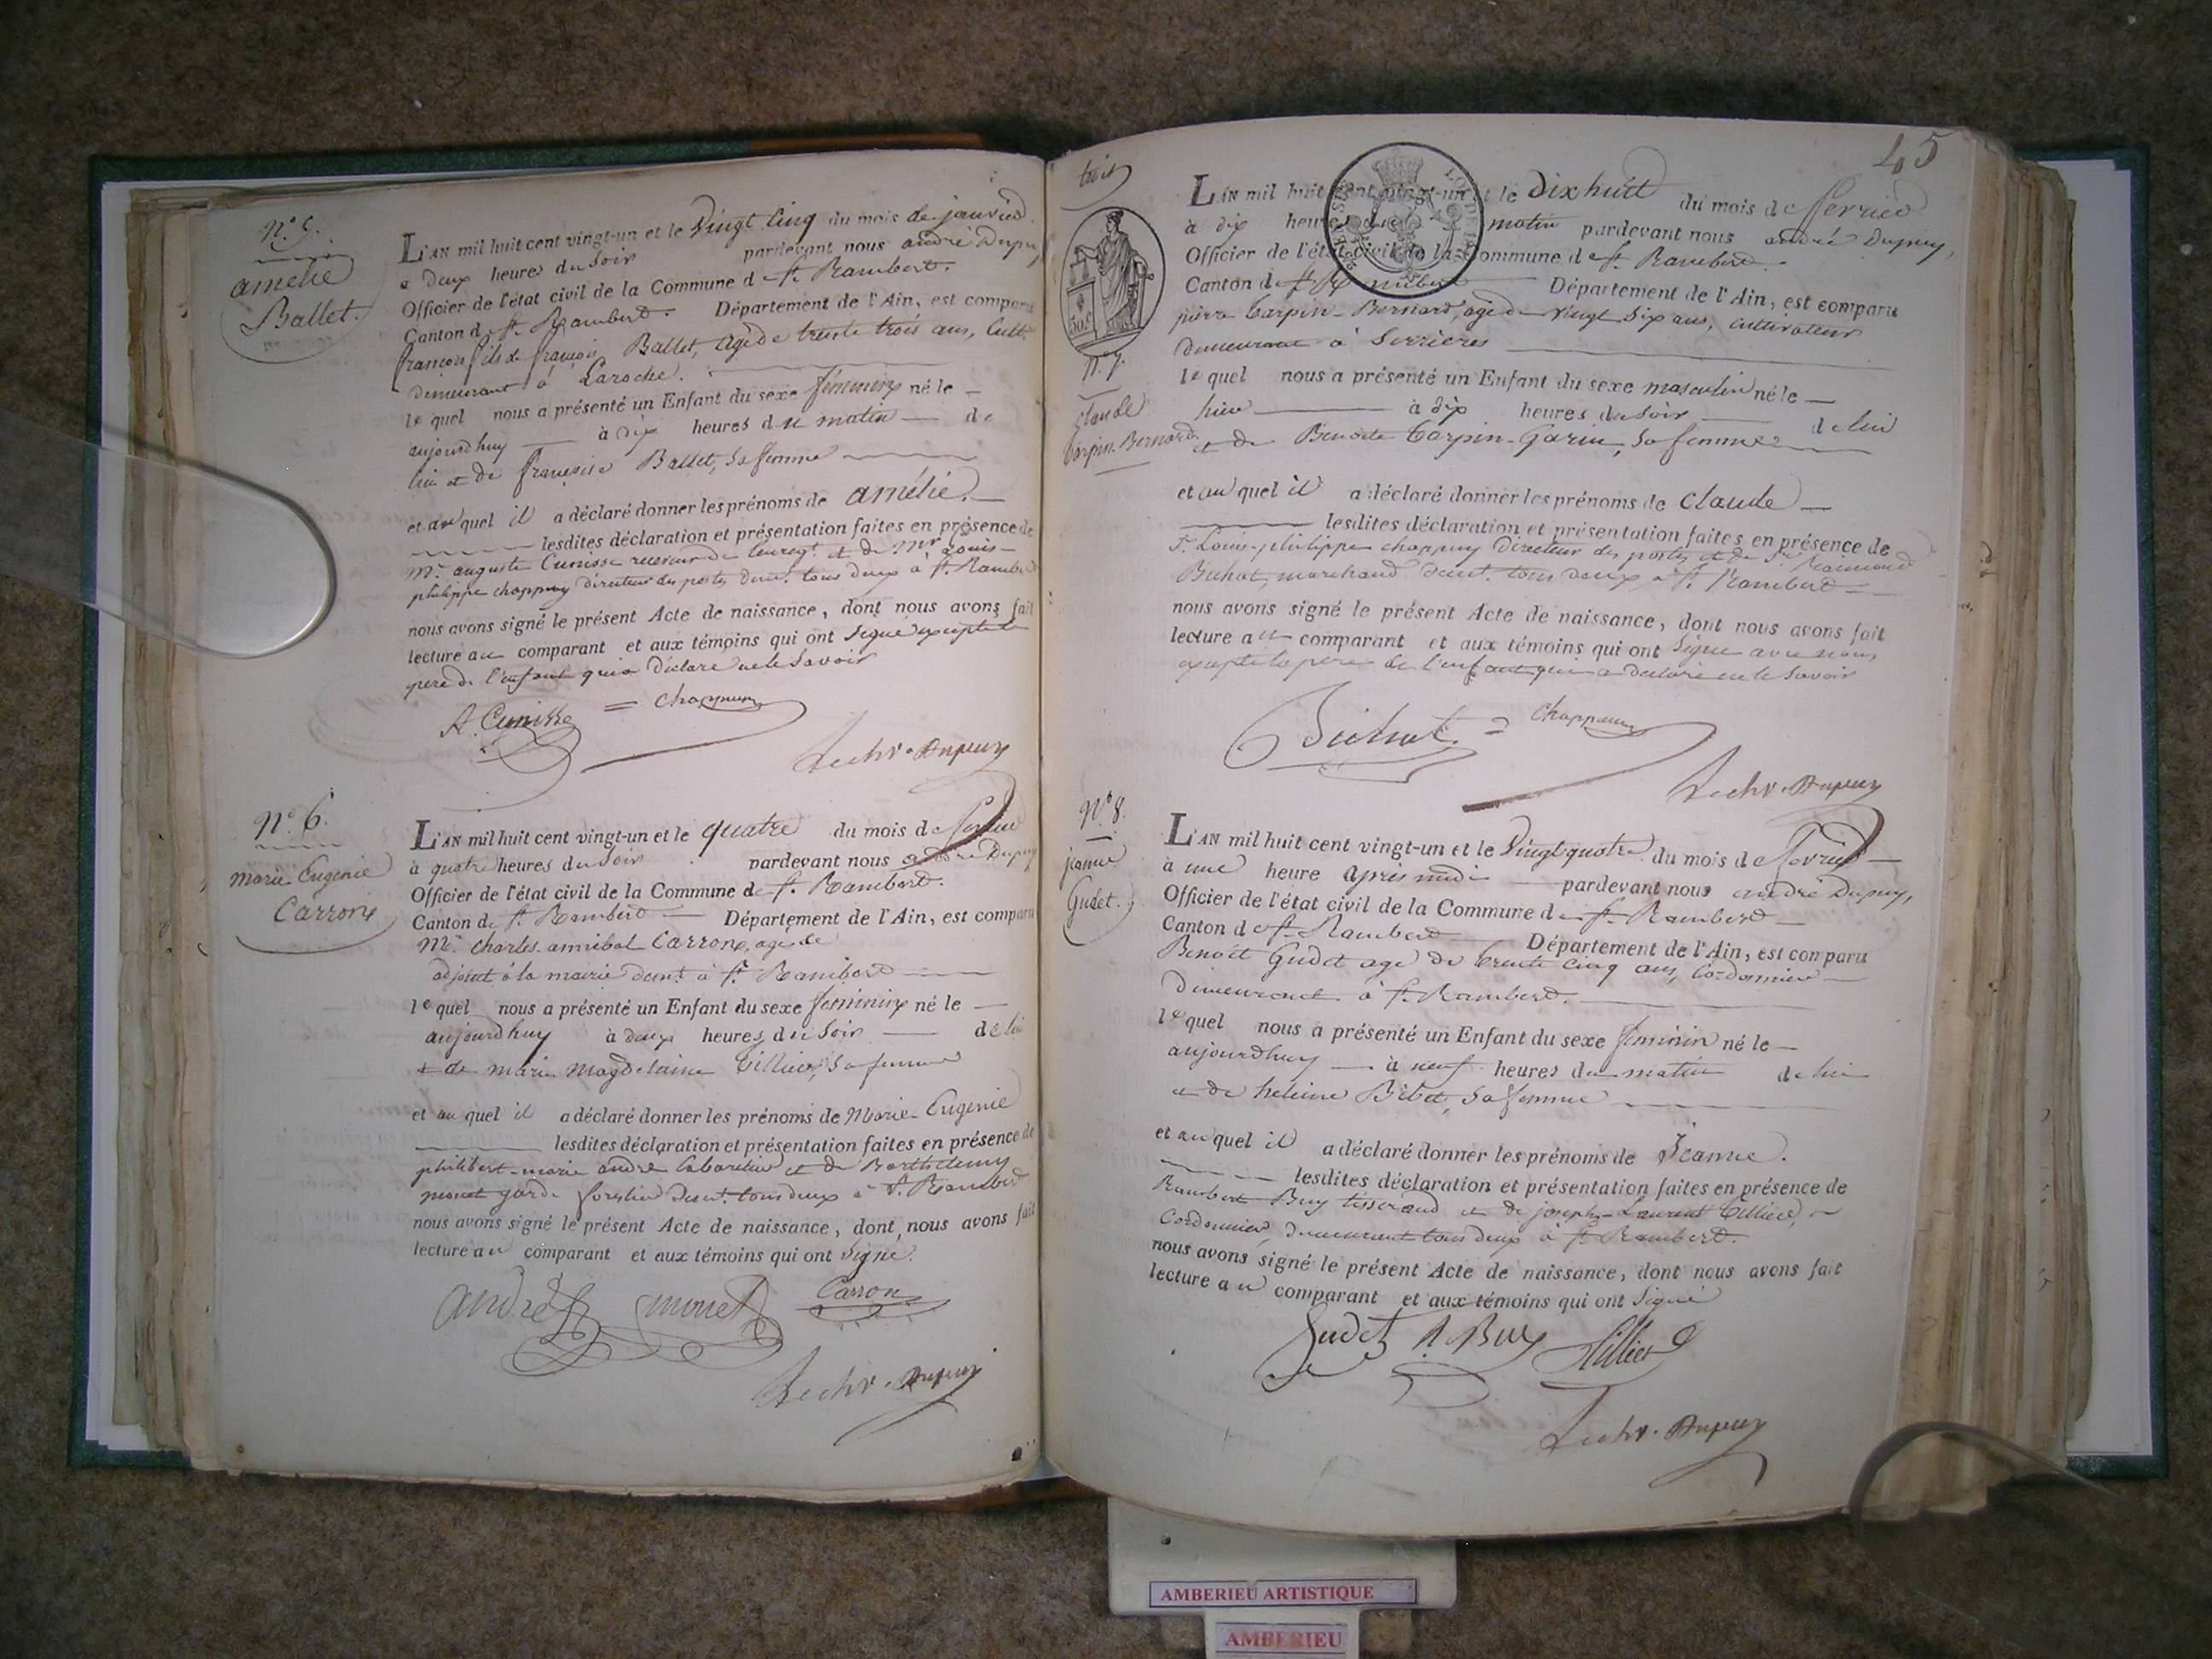 N.° 5.
amélie
Ballet.
L'AN mil huit cent vingt-un et le Vingt Cinq du mois de janvier
à deux heures du Soir pardevant nous andré Dupuy
Officier de l'état civil de la Commune de St. Rambert.
Canton de St. Rambert. Département de l'Ain, est comparu
françois fils de françois Ballet, agé de trente trois ans, Cult.
demeurant à Laroche.
lequel nous a présenté un Enfant du sexe féminin né le
aujourdhuy à dix heures du matin de
lui et de françoise Ballet, Sa femme
et auquel il a déclaré donner les prénoms de amélie.
lesdites déclaration et présentation faites en présence de
Mr. auguste Cunisse receveur de l'enregt. et de Mr Louis-
philippe chappuy directeur des postes demt. tous deux à St. Rambert
nous avons signé le présent Acte de naissance, dont nous avons fait
lecture au comparant et aux témoins qui ont Signé excepté le
pere de l'enfant qui a déclaré ne le Savoir
A. Cunisse = chappuy
Dupuy
N.° 6.
marie-Eugénie
Carron
L'AN mil huit cent vingt-un et le quatre du mois de fevrier
à quatre heures du Soir pardevant nous andré Dupuy
Officier de l'état civil de la Commune de St. Rambert.
Canton de St. Rambert Département de l'Ain, est comparu
Mr. Charles-annibal Carron, agé de
adjoint à la mairie demt. à St. Rambert
lequel nous a présenté un Enfant du sexe féminin né le
aujourdhuy à deux heures du Soir de lui
et de marie Magdelaine Tillier, Sa femme
et auquel il a déclaré donner les prénoms de Marie-Eugénie
lesdites déclaration et présentation faites en présence de
philibert-marie andré Cabaretier et de Barthelemy
monet garde forestier demt. tous deux à St. Rambert
nous avons signé le présent Acte de naissance, dont nous avons fait
lecture au comparant et aux témoins qui ont Signé.
andré monet Carron
Dupuy
45
trois
50 c
N.° 7.
Claude
Carpin-Bernard
L'AN mil huit cent vingt-un et le dix huit du mois de fevrier
à dix heures du matin pardevant nous andré Dupuy,
Officier de l'état civil de la Commune de St. Rambert
Canton de St. Rambert Département de l'Ain, est comparu
pierre Carpin-Bernard, agé de vingt Six ans, cultivateur
demeurant à Serrières
lequel nous a présenté un Enfant du sexe masculin né le
hier à dix heures du Soir de lui
et de Benoite Carpin-Garin, Sa femme
et auquel il a déclaré donner les prénoms de Claude
lesdites déclaration et présentation faites en présence de
Sr. Louis-philippe chappuy directeur des postes et de Sr. Raimond
Bichat, marchand demt. tous deux à St. Rambert
nous avons signé le présent Acte de naissance, dont nous avons fait
lecture au comparant et aux témoins qui ont Signé avec nous
excepté le pere de l'enfant qui a déclaré ne le Savoir
Bichat. = chappuy
Dupuy
N.° 8.
jeanne
Gudet.
L'AN mil huit cent vingt-un et le Vingt quatre du mois de fevrier
à une heure après midi pardevant nous andré Dupuy,
Officier de l'état civil de la Commune de St. Rambert
Canton de St. Rambert Département de l'Ain, est comparu
Benoit Gudet agé de trente cinq ans, Cordonnier
demeurant à St. Rambert.
lequel nous a présenté un Enfant du sexe féminin né le
aujourdhuy à neuf heures du matin de lui
et de heleine Bibet, Sa femme
et auquel il a déclaré donner les prénoms de Jeanne.
lesdites déclaration et présentation faites en présence de
Rambert Buy tisserand et de joseph-Laurent Tillier,
Cordonnier, demeurant tous deux à St. Rambert.
nous avons signé le présent Acte de naissance, dont nous avons fait
lecture au comparant et aux témoins qui ont Signé
Gudet R Buy Tillier
Dupuy
AMBERIEU ARTISTIQUE
AMBERIEU